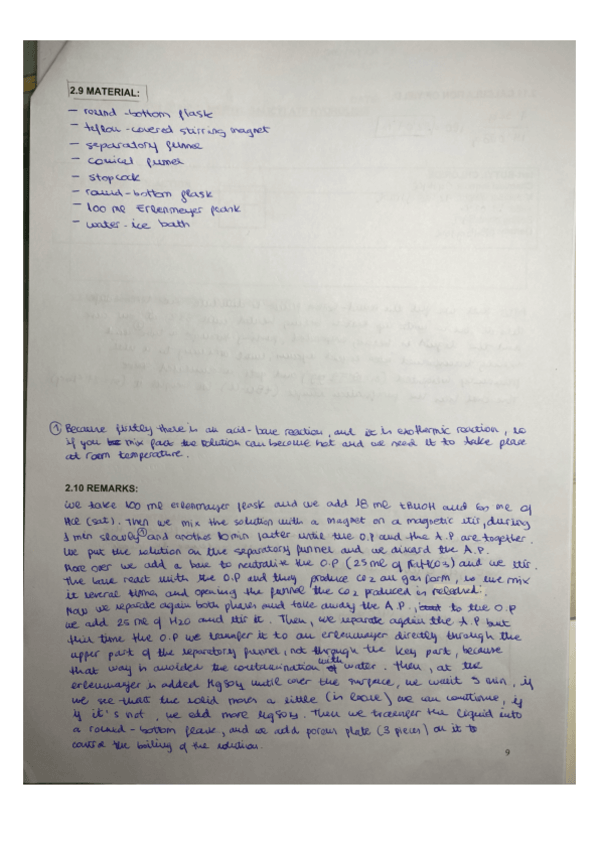 2.9 MATERIAL:
- round-bottom flask
- teflon-covered stirring magnet
- separatory funnel
- conical funnel
- stopcock
- round-bottom flask
- 100 ml Erlenmeyer flask
- water-ice bath
① Because firstly there is an acid-base reaction, and it is exothermic reaction, so
if you mix fast the solution can become hot and we need it to take place
at room temperature.
2.10 REMARKS:
We take 100 ml erlenmeyer flask and we add 18 ml tBuOH and 60 ml of
HCl (sat). Then we mix the solution with a magnet on a magnetic stir, during
1 min slowly① and another 10 min faster until the O.P and the A.P are together.
We put the solution on the separatory funnel and we discard the A.P.
More over we add a base to neutralize the O.P (25 ml of NaHCO3) and we stir.
The base react with the O.P and they produce CO2 on gas form, so we mix
it several times and opening the funnel the CO2 produced is released.
Now we separate again both phases and take away the A.P., to the O.P
we add 25 ml of H2O and stir it. Then, we separate again the A.P but
this time the O.P we transfer it to an erlenmeyer directly through the
upper part of the separatory funnel, not through the key part, because
that way is avoided the contamination with of water. Then, at the
erlenmeyer is added MgSO4 until cover the surface, we wait 5 min, if
we see that the solid moves a little (is loose) we can continue, if
if it's not, we add more MgSO4. Then we transfer the liquid into
a round-bottom flask, and we add porous plate (3 pieces) on it to
control the boiling of the solution.
9